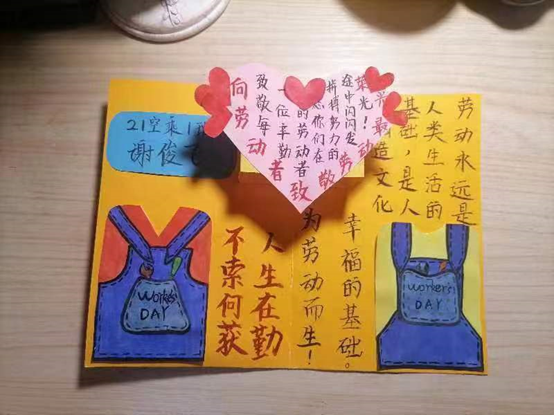 21空乘1
谢俊
向劳动者致敬
致敬每
一位辛勤
的劳动者
你们在
拼搏努力的
途中闪闪发
光！
劳动永远是
人类生活的
基础，是人
造文化
幸福的基础。
为劳动而生！
人生在勤
不索何获
workers
DAY
workers
DAY